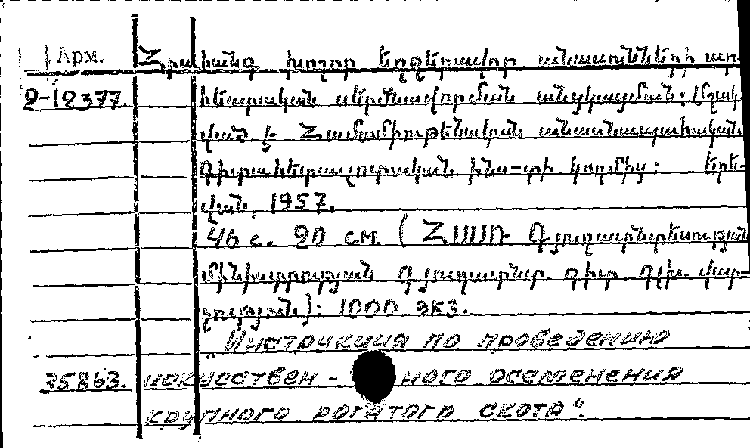 Арм. Հրահանգ խոշոր եղջերավոր անասունների ար-
2-12377. հեստական սերմնավորման անցկացման: [Մշակ-
ված է Համամիութենական անասնաբուծական
գիտահետազոտական ինս-տի կողմից: Երև-
ան, 1957.
46 с. 20 см (ՀՍՍՌ Գյուղատնտեսության
մինիստրության գյուղատնտ. գիտ. գլխ. վար-
չություն): 1000 экз.
"Инструкция по проведению
35863. искусствен-ного осеменения
крупного рогатого скота".